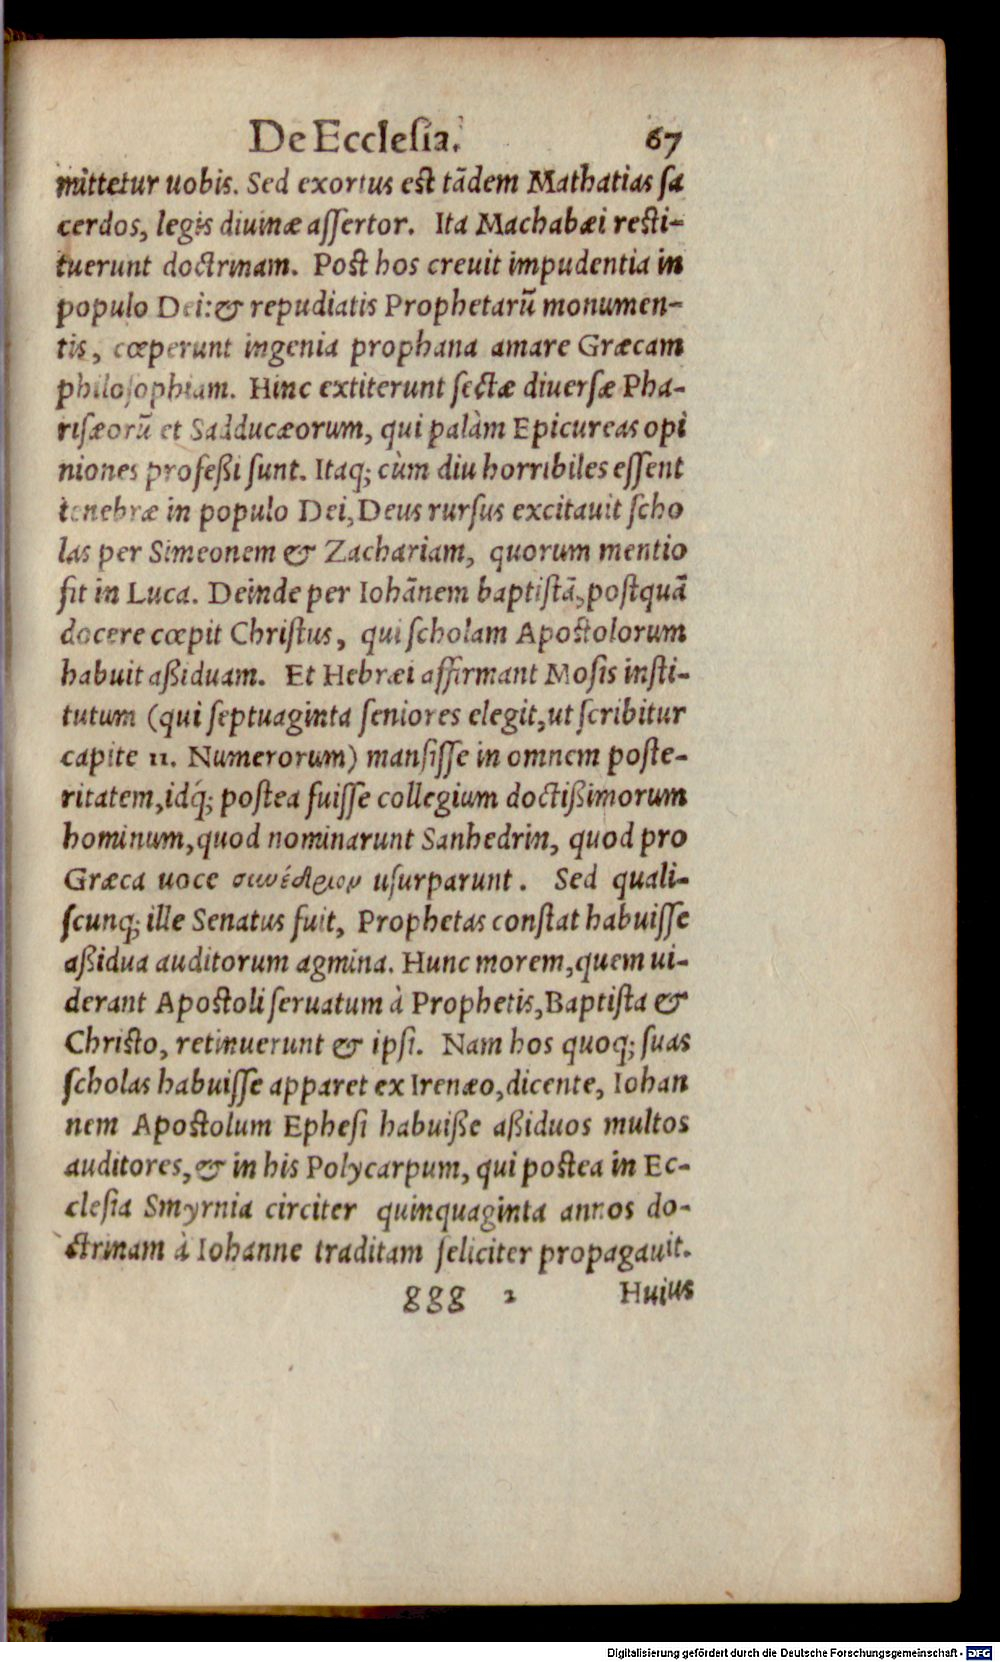 De Ecclesia. 67
mittetur uobis. Sed exortus est tādem Mathatias sa
cerdos, legis diuinæ assertor. Ita Machabæi resti-
tuerunt doctrinam. Post hos creuit impudentia in
populo Dei: & repudiatis Prophetarū monumen-
tis, cœperunt ingenia prophana amare Græcam
philosophiam. Hinc extiterunt sectæ diuersæ Pha-
risæorū et Sadducæorum, qui palàm Epicureas opi
niones profeßi sunt. Itaq; cùm diu horribiles essent
tenebræ in populo Dei, Deus rursus excitauit scho
las per Simeonem & Zachariam, quorum mentio
fit in Luca. Deinde per Iohānem baptistā, postquā
docere cœpit Christus, qui scholam Apostolorum
habuit aßiduam. Et Hebræi affirmant Mosis insti-
tutum (qui septuaginta seniores elegit, ut scribitur
capite 11. Numerorum) mansisse in omnem poste-
ritatem, idq́; postea fuisse collegium doctißimorum
hominum, quod nominarunt Sanhedrin, quod pro
Græca uoce συνέδριον usurparunt. Sed quali-
scunq; ille Senatus fuit, Prophetas constat habuisse
aßidua auditorum agmina. Hunc morem, quem ui-
derant Apostoli seruatum à Prophetis, Baptista &
Christo, retinuerunt & ipsi. Nam hos quoq; suas
scholas habuisse apparet ex Irenæo, dicente, Iohan
nem Apostolum Ephesi habuiße aßiduos multos
auditores, & in his Polycarpum, qui postea in Ec-
clesia Smyrnia circiter quinquaginta annos do-
ctrinam à Iohanne traditam feliciter propagauit.
ggg 2 Huius
Digitalisierung gefördert durch die Deutsche Forschungsgemeinschaft - DFG